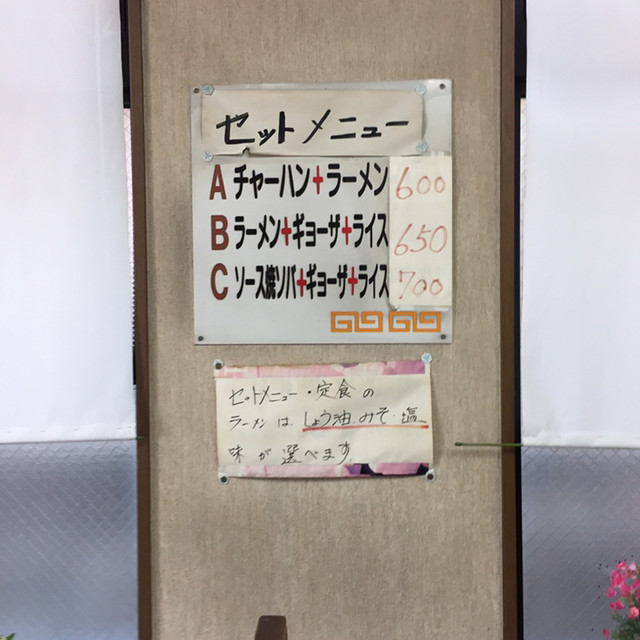 セットメニュー
A チャーハン+ラーメン 600
B ラーメン+ギョーザ+ライス 650
C ソース焼ソバ+ギョーザ+ライス 700
セットメニュー・定食の
ラーメンは しょう油 みそ・塩
味が選べます